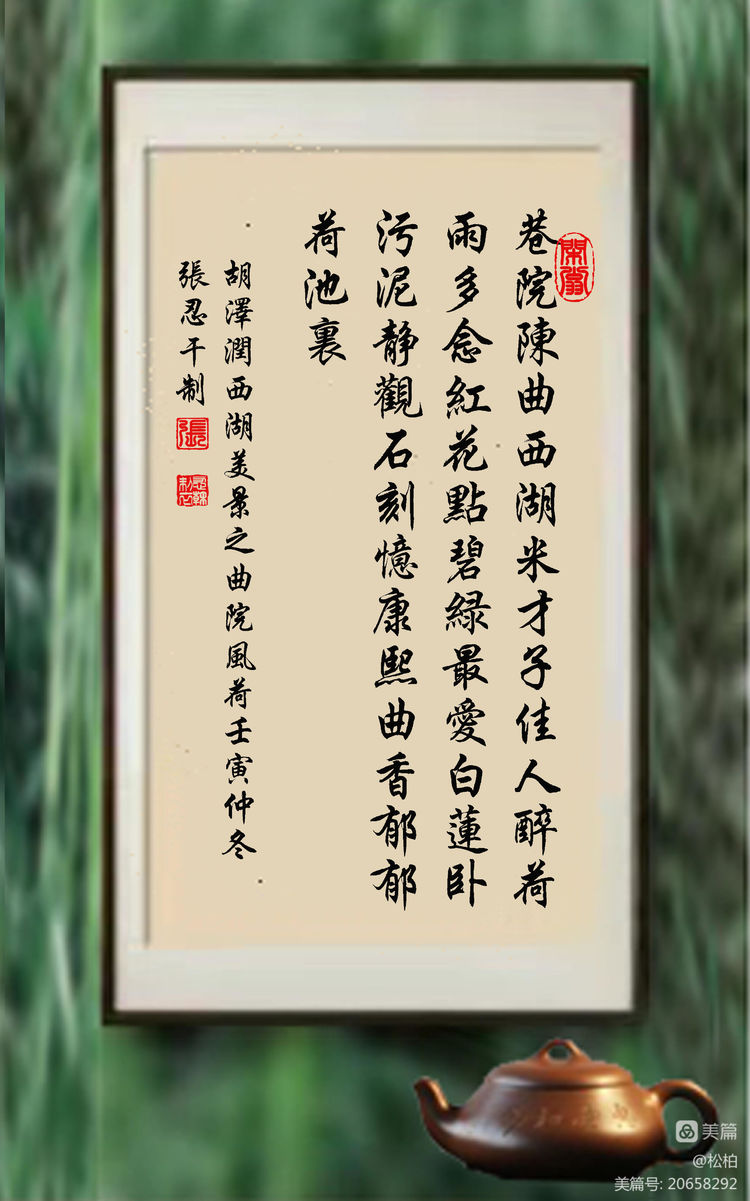 巷院陳曲西湖米才子佳人醉荷
雨多念紅花點碧綠最愛白蓮卧
污泥静觀石刻憶康熙曲香郁郁
荷池裏
胡澤潤西湖美景之曲院風荷壬寅仲冬
張忍干制
張
美篇
@松柏
美篇号: 20658292